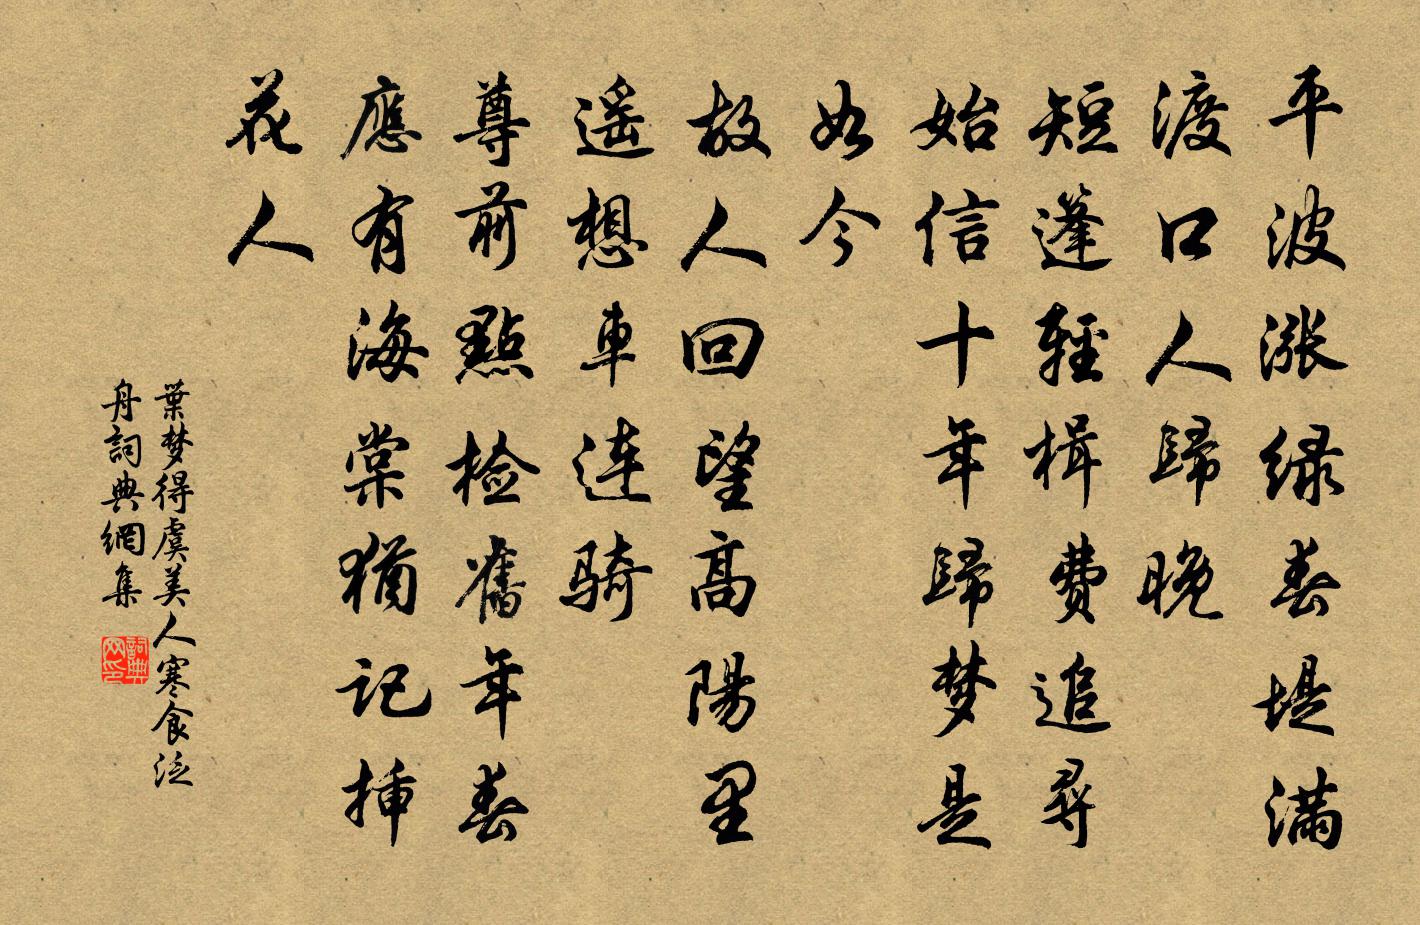 平波漲緑春堤滿
渡口人歸晚
短篷輕楫費追尋
始信十年歸梦是
如今
故人回望高陽里
遥想車連騎
尊前點檢舊年春
應有海棠猶記插
花人
葉梦得虞美人寒食泛
舟詞典網集
詞典网印